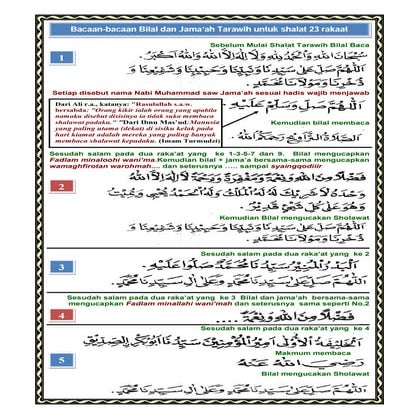 Bacaan-bacaan Bilal dan Jama'ah Tarawih untuk shalat 23 rakaat
Sebelum Mulai Shalat Tarawih Bilal Baca
1
سُبْحَانَ اللهِ وَالْحَمْدُ لِلّٰهِ وَلَا إِلٰهَ إِلَّا اللهُ وَاللهُ أَكْبَر
اَللّٰهُمَّ صَلِّ عَلَى سَيِّدِنَا وَنَبِيِّنَا وَحَبِيْبِنَا وَشَفِيْعِنَا وَ
ذُخْرِنَا وَمَوْلَانَا مُحَمَّدٍ
Setiap disebut nama Nabi Muhammad saw Jama'ah sesuai hadis wajib menjawab
Dari Ali r.a., katanya: "Rasulullah s.a.w.
bersabda: "Orang kikir ialah orang yang apabila
namaku disebut disisinya ia tidak suka membaca
shalawat padaku." "Dari Ibnu Mas'ud: Manusia
yang paling utama (dekat) di sisiku kelak pada
hari kiamat adalah mereka yang paling banyak
membaca shalawat kepadaku. (Imam Turmudzi)
اَللّٰهُمَّ صَلِّ وَسَلِّمْ عَلَيْهِ
Kemudian bilal membaca
الصَّلَاةَ التَّرَاوِيْحِ رَحِمَكُمُ اللهُ
Sesudah salam pada dua raka'at yang ke 1-3-5-7 dan 9. Bilal mengucapkan
Fadlam minaloohi wani'ma. Kemudian bilal + jama'a bersama-sama mengucapkan
wamaghfirotan warohmah.... dan seterusnya ..... sampai syaingqodiir
2
فَضْلًا مِنَ اللهِ وَنِعْمَةً وَمَغْفِرَةً وَرَحْمَةً لَا إِلٰهَ إِلَّا اللهُ
وَحْدَهُ لَا شَرِيْكَ لَهُ لَهُ الْمُلْكُ وَلَهُ الْحَمْدُ يُحْيِيْ وَيُمِيْتُ
وَهُوَ عَلَى كُلِّ شَيْءٍ قَدِيْرٌ
Kemudian Bilal mengucakan Sholawat
اَللّٰهُمَّ صَلِّ عَلَى سَيِّدِنَا وَنَبِيِّنَا وَحَبِيْبِنَا وَشَفِيْعِنَا وَ
ذُخْرِنَا وَمَوْلَانَا مُحَمَّدٍ
Sesudah salam pada dua raka'at yang ke 2
3
اَلْبَدْرُ الْمُنِيْرُ سَيِّدُنَا مُحَمَّدٌ صَلُّوْا عَلَيْهِ
اَللّٰهُمَّ صَلِّ عَلَى سَيِّدِنَا مُحَمَّدٍ وَعَلَى آلِ سَيِّدِنَا مُحَمَّدٍ
Sesudah salam pada dua raka'at yang ke 3 Bilal dan jama'ah bersama-sama
mengucapkan Fadlam minallahi wani'mah dan seterusnya sama seperti No.2
4
فَضْلًا مِنَ اللهِ وَنِعْمَةً ....
Sesudah salam pada dua raka'at yang ke 4
5
اَلْخَلِيْفَةُ الْأُوْلَى أَمِيْرُ الْمُؤْمِنِيْنَ سَيِّدُنَا أَبُوْ بَكْرٍ الصِّدِّيْقُ
Makmum membaca
رَضِيَ اللهُ عَنْهُ
Bilal mengucakan Sholawat
اَللّٰهُمَّ صَلِّ عَلَى سَيِّدِنَا مُحَمَّدٍ وَعَلَى آلِ سَيِّدِنَا مُحَمَّدٍ